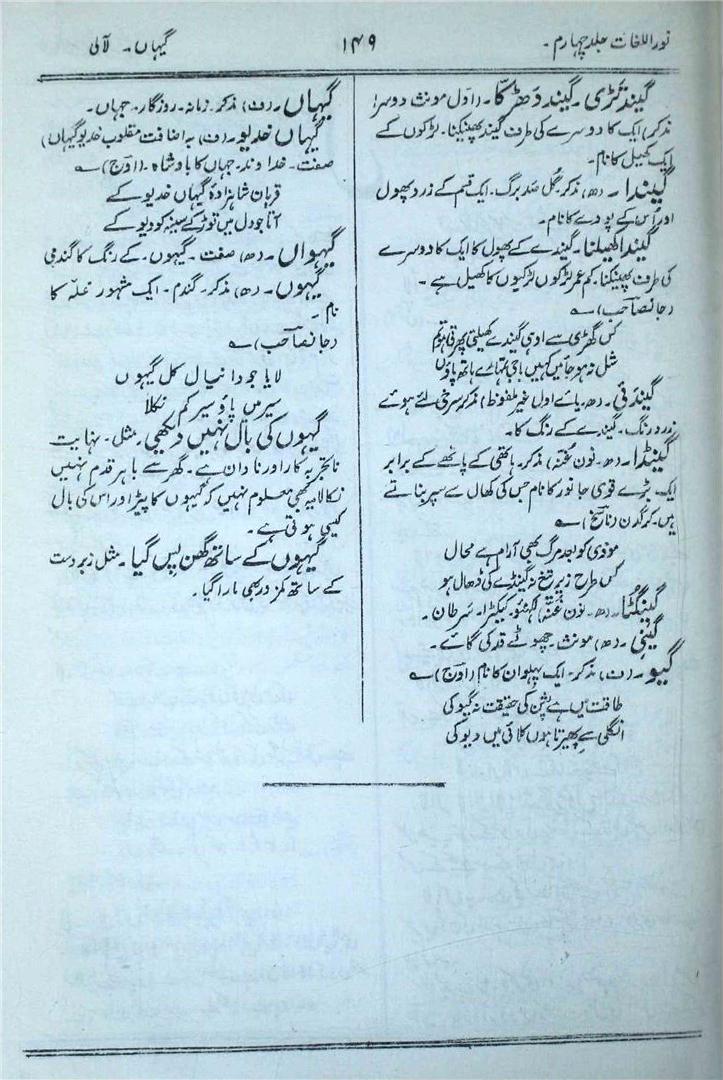 نور اللغات جلد چہارم۔
۱۴۹
گیہاں۔ لآلی
گیند تڑی۔ گیند دھڑکا۔ (اول مونث دوسرا
مذکر) ایک کا دوسرے کی طرف گیند پھینکنا۔ لڑکوں کے
ایک کھیل کا نام۔
گیندا۔ (ھ) مذکر۔ گُل صد برگ۔ ایک قسم کے زرد پھول
اور اُس کے پودے کا نام۔
گیندا کھیلنا۔ گیندے کے پھول کا ایک کا دوسرے
کی طرف پھینکنا۔ کم عمر لڑکوں لڑکیوں کا کھیل ہے۔
(جانصاحب) ؎
کس گھڑی سے اوہی گیندے کھیلتی پھرتی ہو تم
شل نہ ہو جائیں کہیں باجی تمہارے ہاتھ پاؤں
گیندئی۔ (ھ۔ یاے اول غیر ملفوظ) مذکر سرخی لئے ہوئے
زرد رنگ۔ گیندے کے رنگ کا۔
گینڈا۔ (ھ۔ نون غنہ) مذکر۔ ہاتھی کے پاٹھے کے برابر
ایک بڑے قوی جانور کا نام جس کی کھال سے سپر بناتے
ہیں۔ کرگدن (ناسخ) ؎
موذی کو بعد مرگ بھی آرام ہے محال
کس طرح زیر تیغ نہ گینڈے کی ڈھال ہو
گینگٹا۔ (ھ۔ نون غنہ) لکھنؤ۔ کیکڑا۔ سرطان۔
گینی۔ (ھ) مونث۔ چھوٹے قد کی گائے۔
گیو۔ (ف) مذکر۔ ایک پہلوان کا نام (اوج) ؎
طاقت میں ہے پشن کی حقیقت نہ گیو کی
انگلی سے پھیرتا ہوں کلائی میں دیو کی
گیہاں۔ (ف) مذکر۔ زمانہ۔ روزگار۔ جہاں۔
گیہاں خدیو۔ (ف) بہ اضافت مقلوب خدیو گیہاں)
صفت۔ خداوند۔ جہاں کا بادشاہ۔ (اوج) ؎
قربان شاہزادۂ گیہاں خدیو کے
آنا جو دل میں توڑ کے سینہ کو دیو کے
گیہواں۔ (ھ) صفت۔ گیہوں۔ کے رنگ کا گندمی
گیہوں۔ (ھ) مذکر۔ گندم۔ ایک مشہور غلہ کا
نام۔
(جانصاحب) ؎
لایا جو دانیال کل گیہوں
سیر میں پاؤ سیر کم نکلا
گیہوں کی بال نہیں دیکھی۔ مثل۔ نہایت
ناتجربہ کار اور نادان ہے۔ گھر سے باہر قدم نہیں
نکالا یہ بھی معلوم نہیں کہ گیہوں کا پیڑ اور اس کی بال
کیسی ہوتی ہے۔
گیہوں کے ساتھ گھن پس گیا۔ مثل زبردست
کے ساتھ کمزور بھی مارا گیا۔